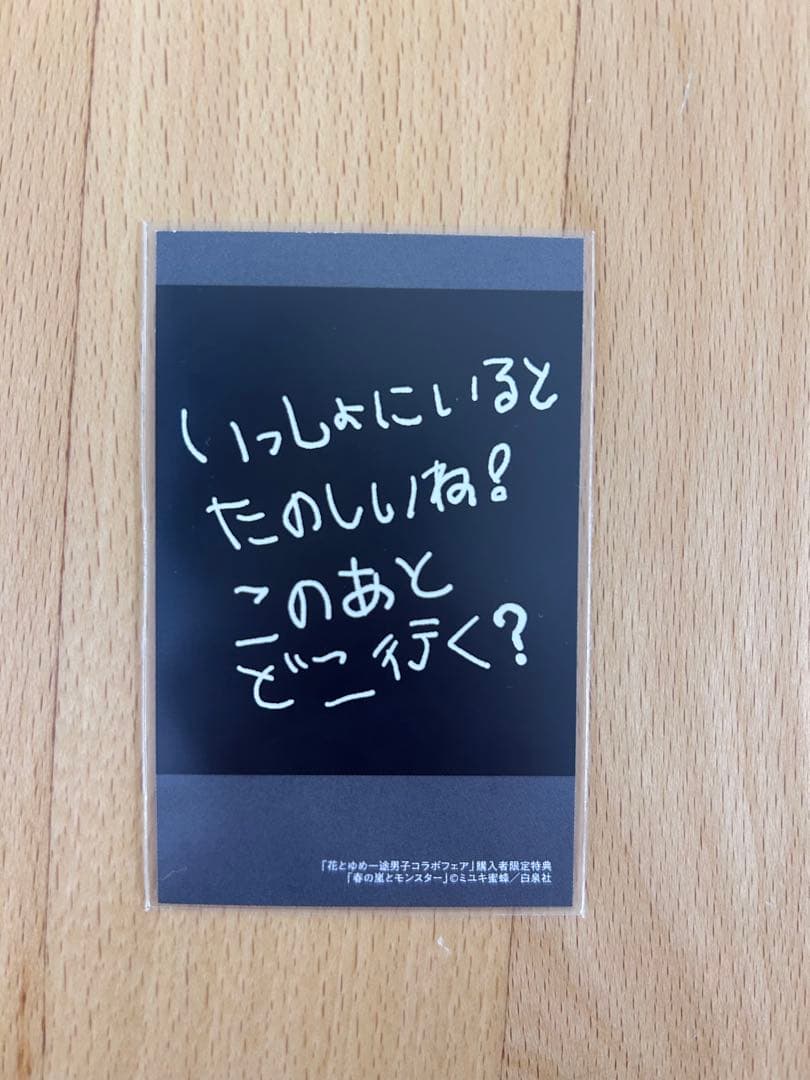 いっしょにいると
たのしいね!
このあと
どこ行く?
「花とゆめ一途男子コラボフェア」購入者限定特典
「春の嵐とモンスター」©ミユキ蜜蜂／白泉社